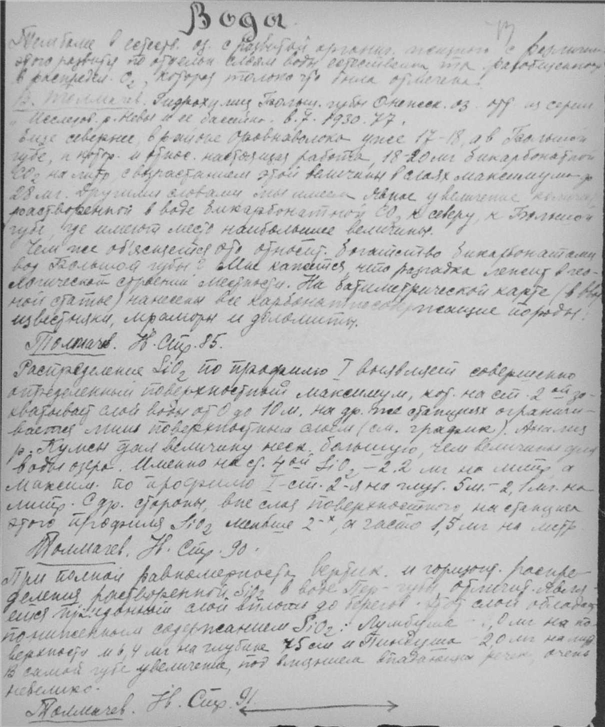 Вода.
Тем более в естеств. оз. с развитой органич. жизнью с
этого развития по отдельн. слоям воды естественна та
в распредел. O₂, которая только что была отмечена.
В. Толмачев. Гидрохимия Больш. губы Онежск. оз. из серии
Исследов. р. Невы и ее бассейна. в. 7. 1930.
Еще севернее, в районе уже 17-18, а в Большой
губе, к котор. и относ. настоящая работа, 18-20 мг бикарбонатной
CO₂ на литр, с вырастанием этой величины в слоях максимума до
28 мг. Другими словами мы имеем явное увеличение
растворенной в воде бикарбонатной CO₂ к северу, к Большой
губе, где имеют место наибольшие величины.
Чем же объясняется это относит. богатство бикарбонатами
вод Большой губы? Мне кажется что разгадка лежит в гео-
логическом строении местности. На батиметрической карте (в
ной статье) нанесены все карбонатсодержащие породы:
известняки, мраморы и доломиты.
Толмачев. Н. Стр. 85.
Распределение SiO₂ по профилю I выявляет совершенно
определенный поверхностный максимум, кот. на ст. 2ой за-
хватывает слой воды от 0 до 10 м. на др. же станциях ограничи-
вается лишь поверхностным слоем (см. график). Анализ
р. Кумсы дал величину неск. большую, чем величины для
воды озера. Именно на ст. 4ой SiO₂ - 2.2 мг на литр, а
максим. по профилю I - ст. 2-я на глуб. 5 м. - 2,1 мг. на
литр. С др. стороны, вне слоя поверхностного, на станциях
этого профиля SiO₂ меньше 2-х, а часто 1,5 мг на литр.
Толмачев. Н. Стр. 90.
При полной равномерности вертик. и горизонт. распре-
деления растворенной SiO₂ в воде губы
ется придонный слой вплоть до берегов. слой обладает
пониженным содержанием SiO₂: Лумбуша - мг на по-
верхности и мг на глубине 75 см и Пиндуши - 2,0 мг на
В самой губе увеличение, под влиянием впадающих речек, очень
невелико.
Толмачев. Н. Стр. 91.